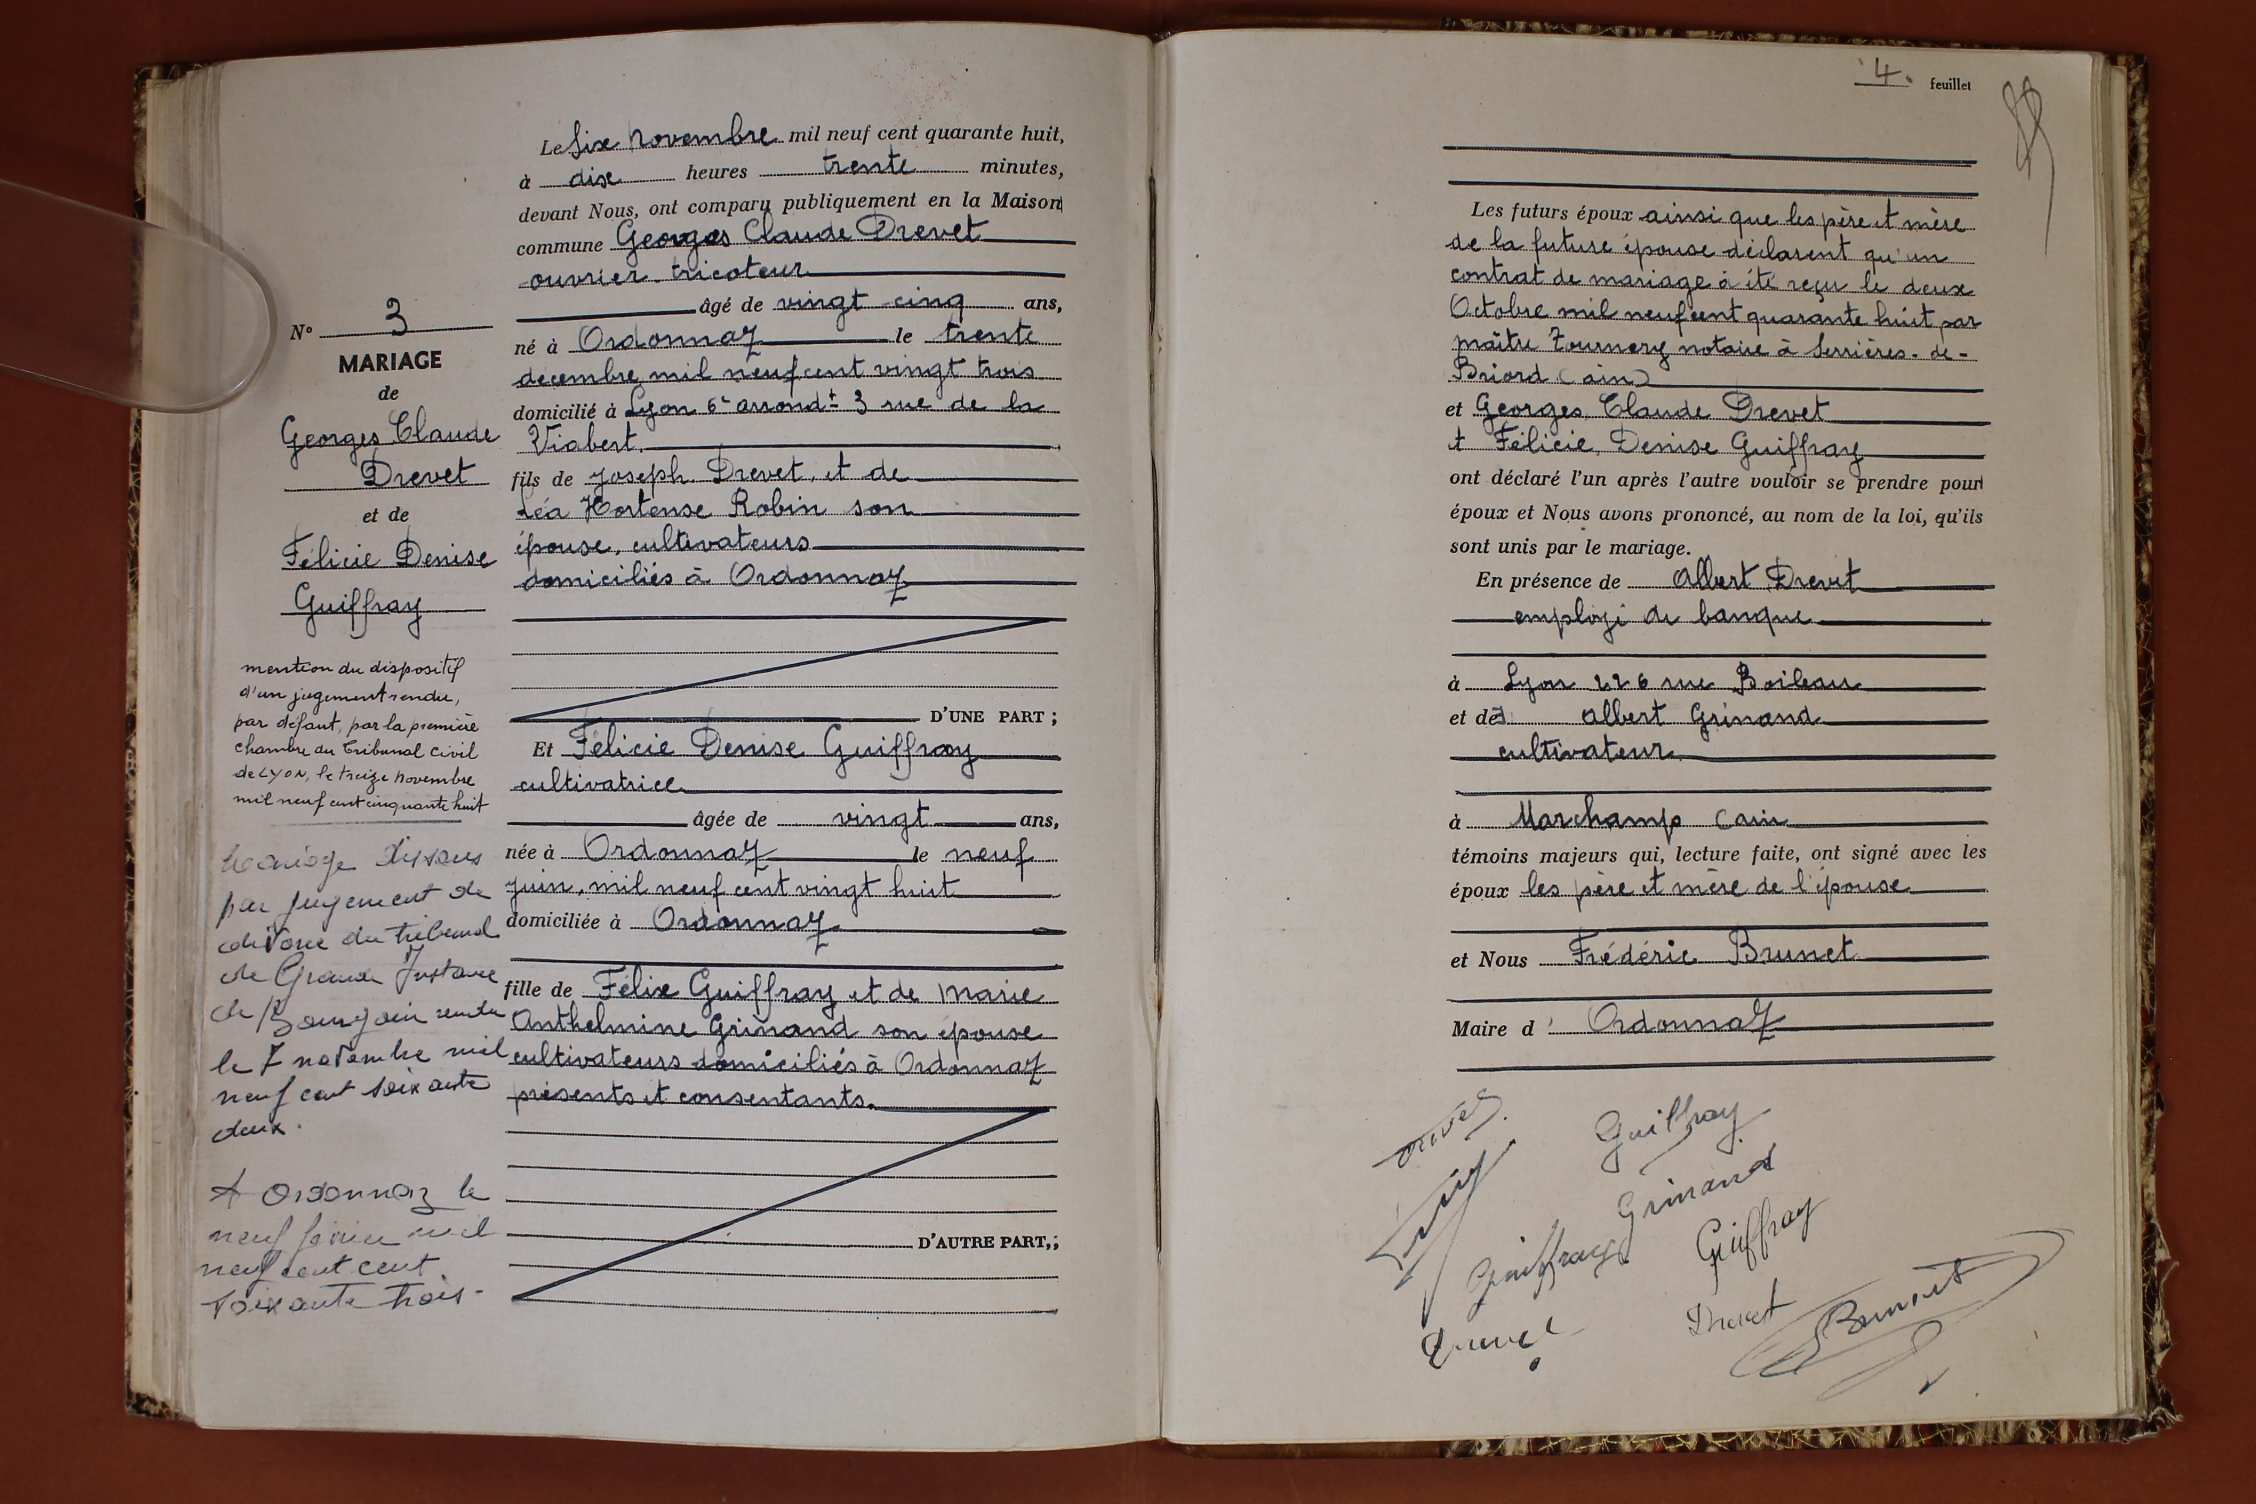 Le six novembre mil neuf cent quarante huit,
à dix heures trente minutes,
devant Nous, ont comparu publiquement en la Maison
commune Georges Claude Drevet
ouvrier tricoteur
âgé de vingt cinq ans,
né à Ordonnaz le trente
décembre mil neuf cent vingt trois
domicilié à Lyon 6e arrondt 3 rue de la
Viabert.
fils de Joseph Drevet, et de
Léa Hortense Robin son
épouse, cultivateurs
domiciliés à Ordonnaz
D'UNE PART ;
Et Félicie Denise Guiffray
cultivatrice
âgée de vingt ans,
née à Ordonnaz le neuf
juin, mil neuf cent vingt huit
domiciliée à Ordonnaz
fille de Félix Guiffray et de Marie
Anthelmine Grinand son épouse
cultivateurs domiciliés à Ordonnaz
présents et consentants.
D'AUTRE PART,;
N° 3
MARIAGE
de
Georges Claude
Drevet
et de
Félicie Denise
Guiffray
mention du dispositif
d'un jugement rendu,
par défaut, par la première
chambre du Tribunal civil
de LYON, le treize novembre
mil neuf cent cinquante huit
Mariage dissous
par jugement de
divorce du tribunal
de Grande Instance
de Bourgoin rendu
le 7 novembre mil
neuf cent soixante
deux.
A Ordonnaz le
neuf février mil
neuf cent cent
soixante trois-
4. feuillet
Les futurs époux ainsi que les père et mère
de la future épouse déclarent qu'un
contrat de mariage à été reçu le deux
Octobre mil neuf cent quarante huit par
maître Tournery notaire à Serrières-de-
Briord (ain)
et Georges, Claude Drevet
et Félicie, Denise Guiffray
ont déclaré l'un après l'autre vouloir se prendre pour
époux et Nous avons prononcé, au nom de la loi, qu'ils
sont unis par le mariage.
En présence de Albert Drevet
employé de banque
à Lyon 226 rue Boileau
et de Albert Grinand
cultivateur
à Marchamp (ain
témoins majeurs qui, lecture faite, ont signé avec les
époux les père et mère de l'épouse
et Nous Frédéric Brunet
Maire d' Ordonnaz
Guiffray
Grinand
Guiffray Guiffray
Drevet
Brunet